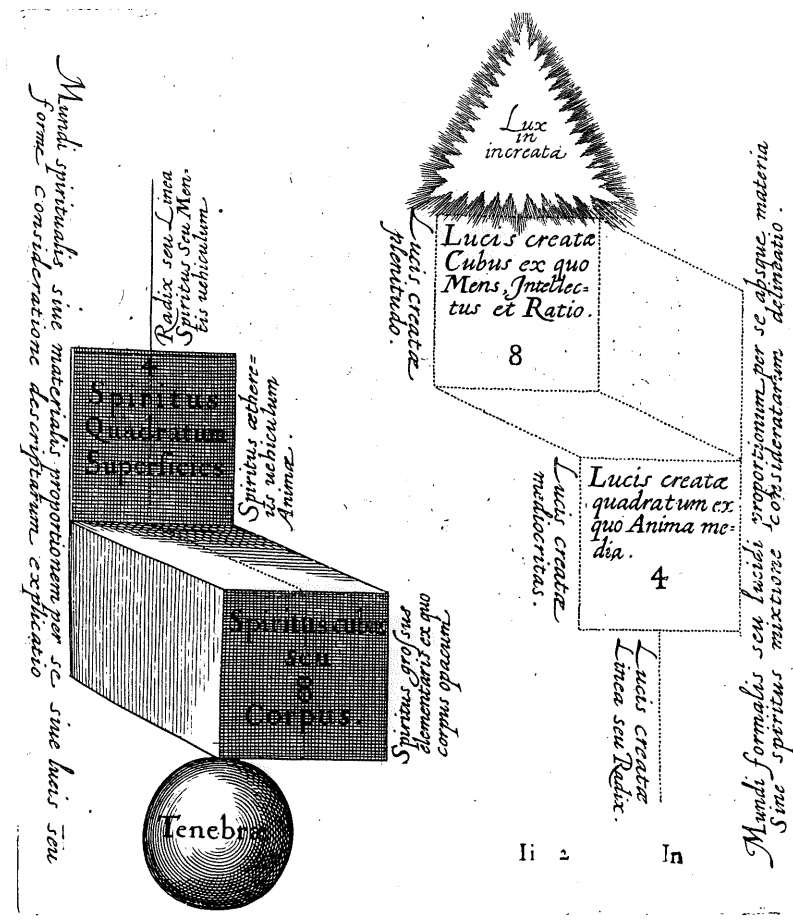 Mundi spiritualis sive materialis proportionem per se sine lucis seu
forme consideratione descriptarum explicatio
Radix seu Linea
Spiritus Seu Men-
tis vehiculum
4
Spiritus
Quadratum
Superficies
Spiritus æthere=
us vehiculum
Animæ.
Spiritus cubus
seu
8
Corpus.
Spiritus grossus
elementaris ex quo
corpus opacum
Tenebræ
Lux
in
increata
Lucis creatæ
plenitudo.
Lucis creatæ
Cubus ex quo
Mens, Intellec=
tus et Ratio.
8
Lucis creatæ
mediocritas.
Lucis creatæ
quadratum ex
quo Anima me=
dia.
4
Lucis creatæ
Linea seu Radix.
Mundi formalis seu lucidi proportionum per se absque materia
Sine spiritus mixtione consideratarum delineatio.
Ii 2 In